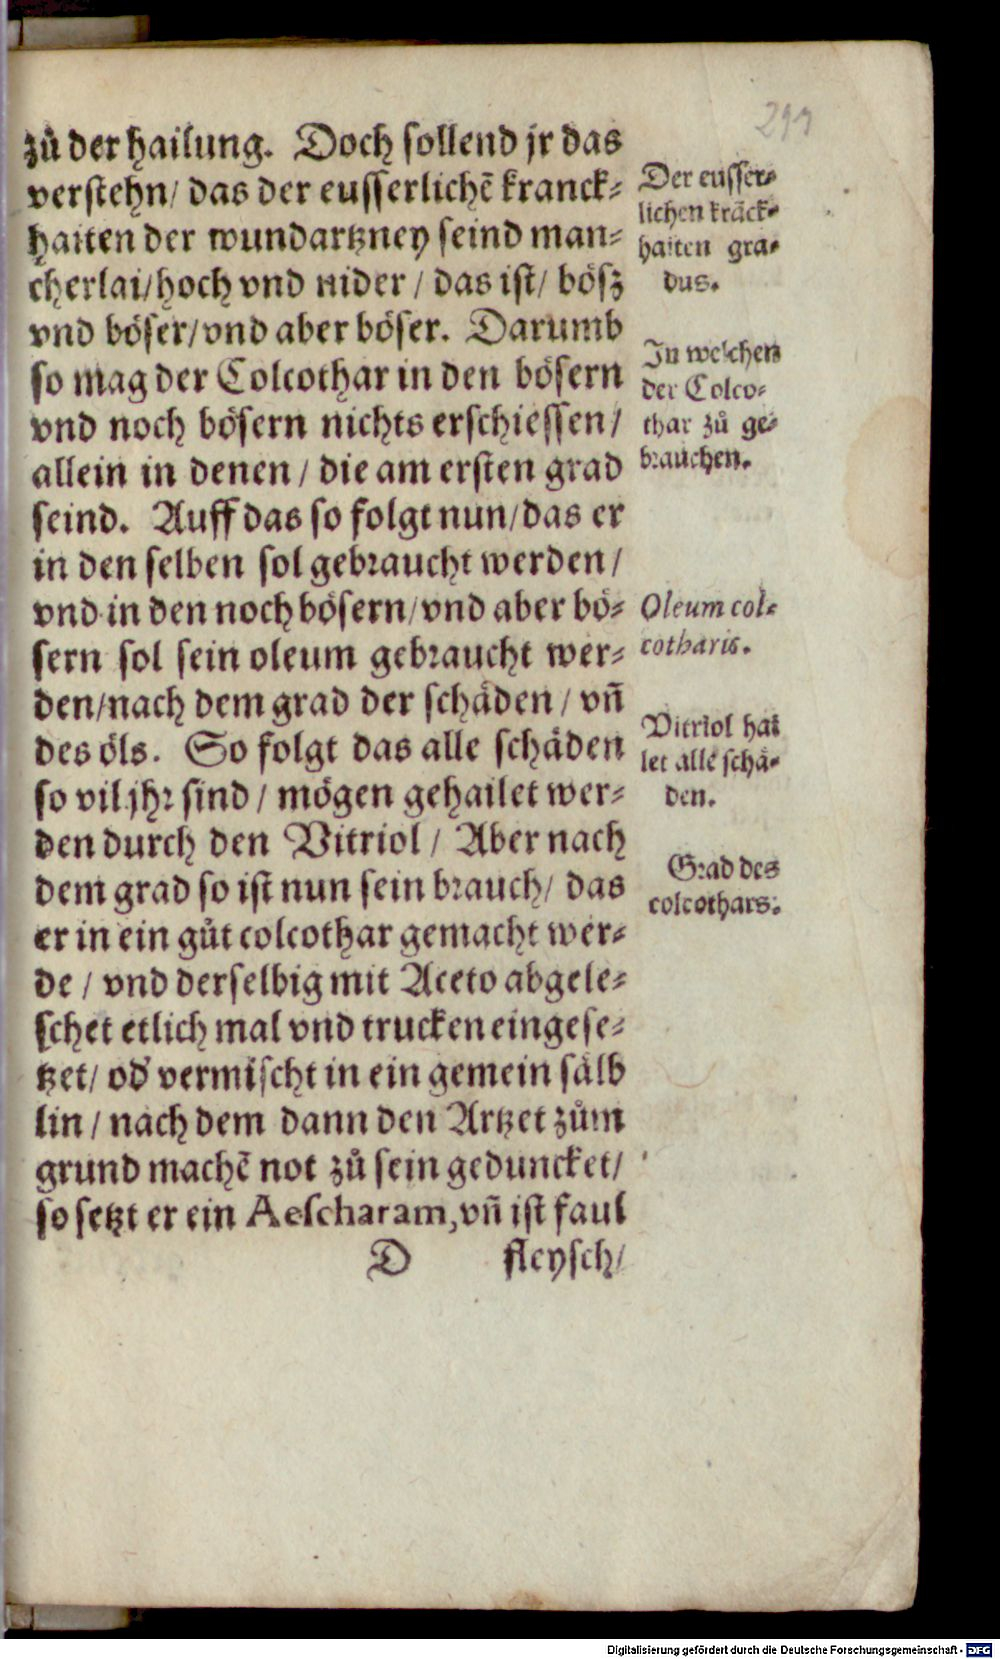 zů der hailung. Doch sollend jr das
verstehn/ das der eusserlichē kranck⸗
haiten der wundartzney seind man⸗
cherlai/hoch vnd nider / das ist/ bösz
vnd böser/vnd aber böser. Darumb
so mag der Colcothar in den bösern
vnd noch bösern nichts erschiessen/
allein in denen / die am ersten grad
seind. Auff das so folgt nun/das er
in den selben sol gebraucht werden/
vnd in den noch bösern/vnd aber bö⸗
sern sol sein oleum gebraucht wer⸗
den/nach dem grad der schäden / vñ
des öls. So folgt das alle schäden
so vil jhr sind / mögen gehailet wer⸗
den durch den Vitriol / Aber nach
dem grad so ist nun sein brauch/ das
er in ein gůt colcothar gemacht wer⸗
de / vnd derselbig mit Aceto abgele⸗
schet etlich mal vnd trucken eingese⸗
tzet/ od' vermischt in ein gemein sälb
lin / nach dem dann den Artzet zům
grund machē not zů sein geduncket/
so setzt er ein Aescharam, vñ ist faul
D fleysch/
Der eusser⸗
lichen kräck⸗
haiten gra⸗
dus.
In welchen
der Colco⸗
thar zů ge⸗
brauchen.
Oleum col⸗
cotharis.
Vitriol hai
let alle schä⸗
den.
Grad des
colcothars.
Digitalisierung gefördert durch die Deutsche Forschungsgemeinschaft - DFG